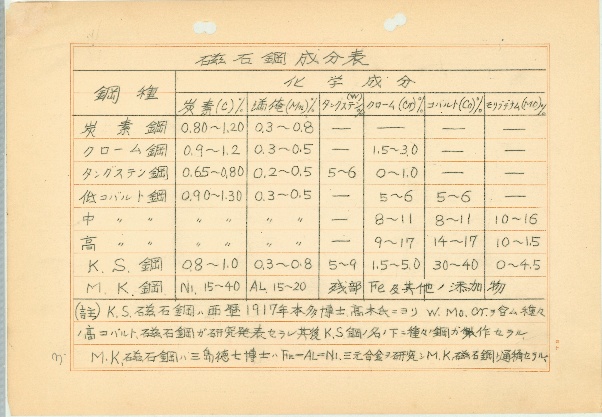 磁石鋼成分表
鋼種 化学成分
炭素(C)% 満俺(Mn)% タングステン(W)% クローム(Cr)% コバルト(Co)% モリブデナム(Mo)%
炭素鋼 0.80〜1.20 0.3〜0.8 — — — —
クローム鋼 0.9〜1.2 0.3〜0.5 — 1.5〜3.0 — —
タングステン鋼 0.65〜0.80 0.2〜0.5 5〜6 0〜1.0 — —
低コバルト鋼 0.90〜1.30 0.3〜0.5 — 5〜6 5〜6 —
中 〃 〃 〃 〃 — 8〜11 8〜11 10〜16
高 〃 〃 〃 〃 — 9〜17 14〜17 10〜1.5
K.S.鋼 0.8〜1.0 0.3〜0.8 5〜9 1.5〜5.0 30〜40 0〜4.5
M.K.鋼 Ni.15〜40 AL.15〜20 残部Fe及其他ノ添加物
(註) K.S.磁石鋼ハ西暦1917年本多博士高木氏ニヨリ W. Mo. Cr.ヲ含ム種々
ノ高コバルト磁石鋼ガ研究発表セラレ其後K.S.鋼ノ名ノ下ニ種々ノ鋼ガ製作セラル.
M.K.磁石鋼ハ三島徳七博士ハFe-AL-Ni.三元合金ヲ研究シM.K.磁石鋼ト通称セラル.